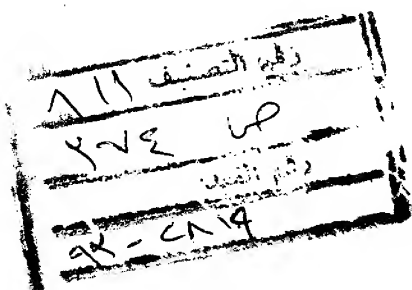 رقم التصنيف ٨١١
ص ٢٧٤
رقم القيد
٩٢ - ٢٨١٩